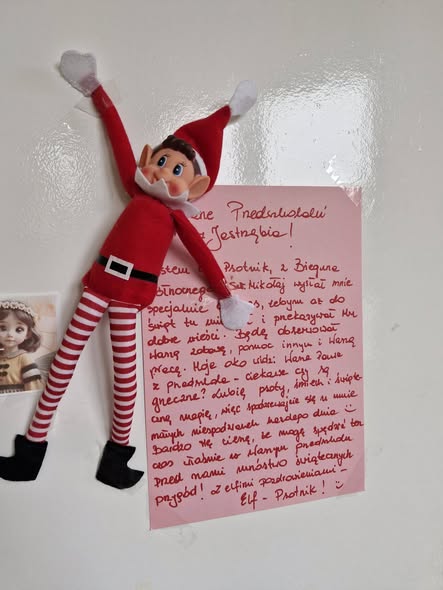 ne Przedszkolaki
z Jastrzębia!
stem Psotnik, z Bieguna
Północnego. Św. Mikołaj wysłał mnie
specjalnie s, żebym aż do
świąt tu i przekazywał Mu
dobre wieści. Będę obserwował
Waszą zabawę, pomoc innym i Waszą
pracę. Moje oko widzi Wasze
z przedszkola - ciekawe czy są
grzeczne? Lubię psoty, śmiech i święte
czną magię, więc spodziewajcie się u mnie
małych niespodzianek każdego dnia :)
Bardzo się cieszę, że mogę spędzić ten
czas właśnie w Waszym przedszkolu
przed nami mnóstwo świątecznych
przygód! Z elfimi pozdrowieniami -
Elf - Psotnik! :)